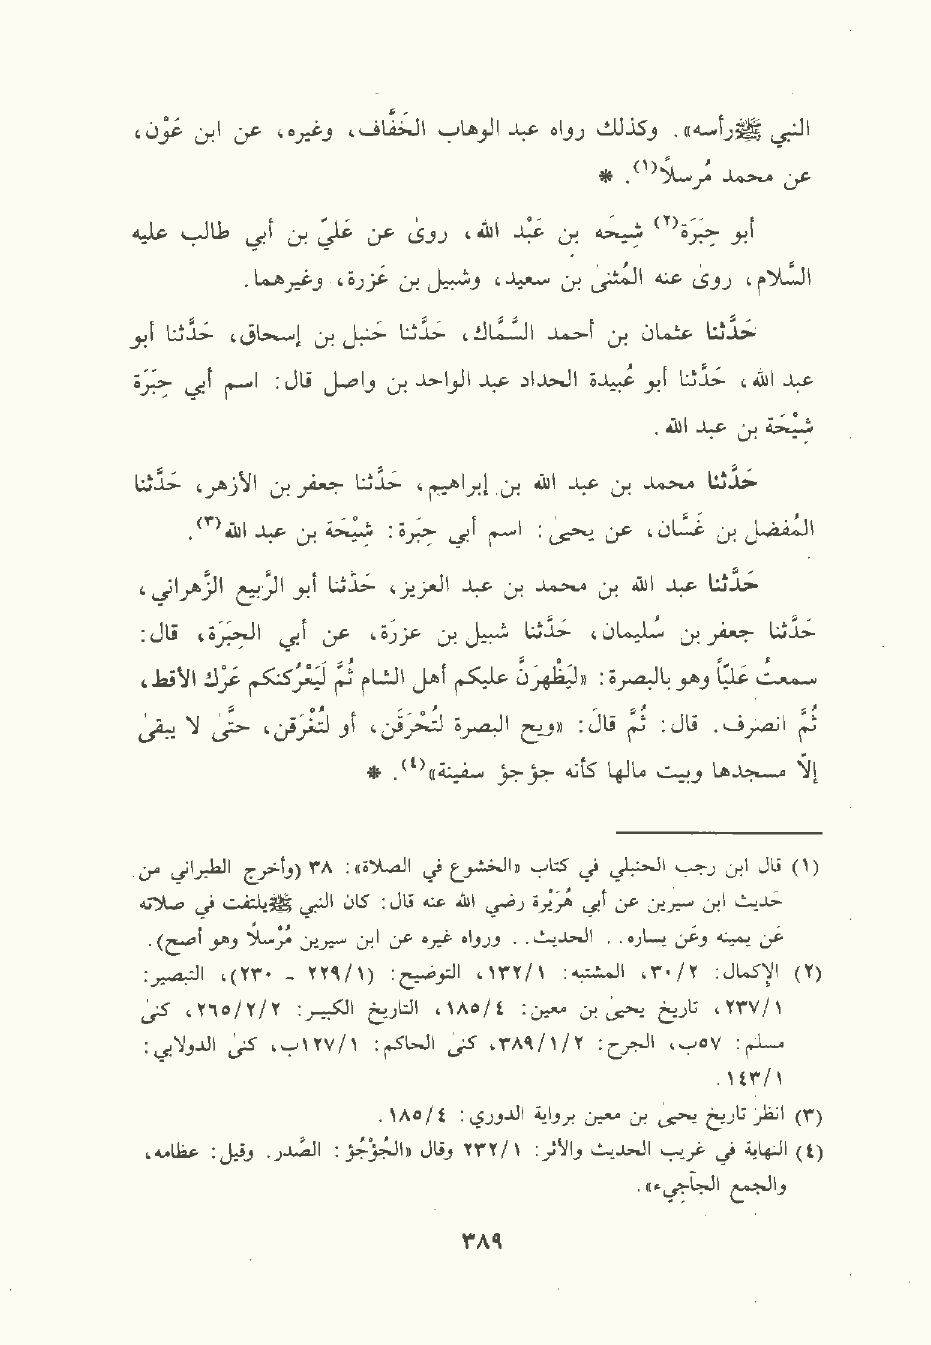 النبي ﷺ رأسه». وكذلك رواه عبد الوهاب الخَفَّاف، وغيره، عن ابن عَوْن،
عن محمد مُرسلاً(١). *
أبو حِبَرَة(٢) شِيحَه بن عَبْد الله، روىٰ عن عَليّ بن أبي طالب عليه
السَّلام، روىٰ عنه المُثنىٰ بن سعيد، وشبيل بن عَزرة، وغيرهما.
حَدَّثنا عثمان بن أحمد السَّمَّاك، حَدَّثنا حَنبل بن إسحاق، حَدَّثنا أبو
عبد الله، حَدَّثنا أبو عُبيدة الحداد عبد الواحد بن واصل قال: اسم أبي حِبَرَة
شِيْحَة بن عبد الله.
حَدَّثنا محمد بن عبد الله بن إبراهيم، حَدَّثنا جعفر بن الأزهر، حَدَّثنا
المُفضل بن غَسَّان، عن يحيىٰ: اسم أبي حِبَرة: شِيْحَة بن عبد الله(٣).
حَدَّثنا عبد الله بن محمد بن عبد العزيز، حَدَّثنا أبو الرَّبيع الزَّهراني،
حَدَّثنا جعفر بن سُليمان، حَدَّثنا شبيل بن عزرَة، عن أبي الحِبَرَة، قال:
سمعتُ عَليَّاً وهو بالبصرة: «ليَظْهَرَنَّ عليكم أهل الشام ثُمَّ لَيَعْرُكنكم عَرْك الأقط،
ثُمَّ انصرف. قال: ثُمَّ قالَ: «ويح البصرة لتُحْرَقَن، أو لتُغْرَقن، حتَّىٰ لا يبقىٰ
إلاّ مسجدها وبيت مالها كأنه جؤجؤ سفينة»(٤). *
(١) قال ابن رجب الحنبلي في كتاب «الخشوع في الصلاة»: ٣٨ (وأخرج الطبراني من
حَديث ابن سيرين عن أبي هُرَيْرة رضي الله عنه قال: كان النبي ﷺ يلتفت في صلاته
عَن يمينه وعَن يساره.. الحديث.. ورواه غيره عن ابن سيرين مُرْسلاً وهو أصح).
(٢) الإكمال: ٣٠/٢، المشتبه: ١٣٢/١، التوضيح: (٢٢٩/١ - ٢٣٠)، التبصير:
٢٣٧/١، تاريخ يحيىٰ بن معين: ١٨٥/٤، التاريخ الكبير: ٢٦٥/٢/٢، كنىٰ
مسلم: ٥٧ب، الجرح: ٣٨٩/١/٢، كنىٰ الحاكم: ١٢٧/١ب، كنىٰ الدولابي:
١٤٣/١.
(٣) انظر تاريخ يحيىٰ بن معين برواية الدوري: ١٨٥/٤.
(٤) النهاية في غريب الحديث والأثر: ٢٣٢/١ وقال «الجُؤْجُؤ: الصَّدر. وقيل: عظامه،
والجمع الجآجِيء».
٣٨٩